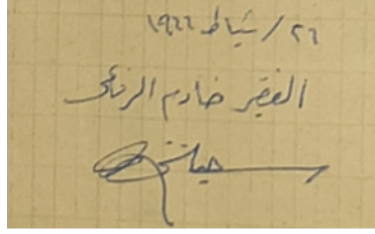 ٢٦ / شباط ١٩٦٦
الفقير خادم الرفاعي